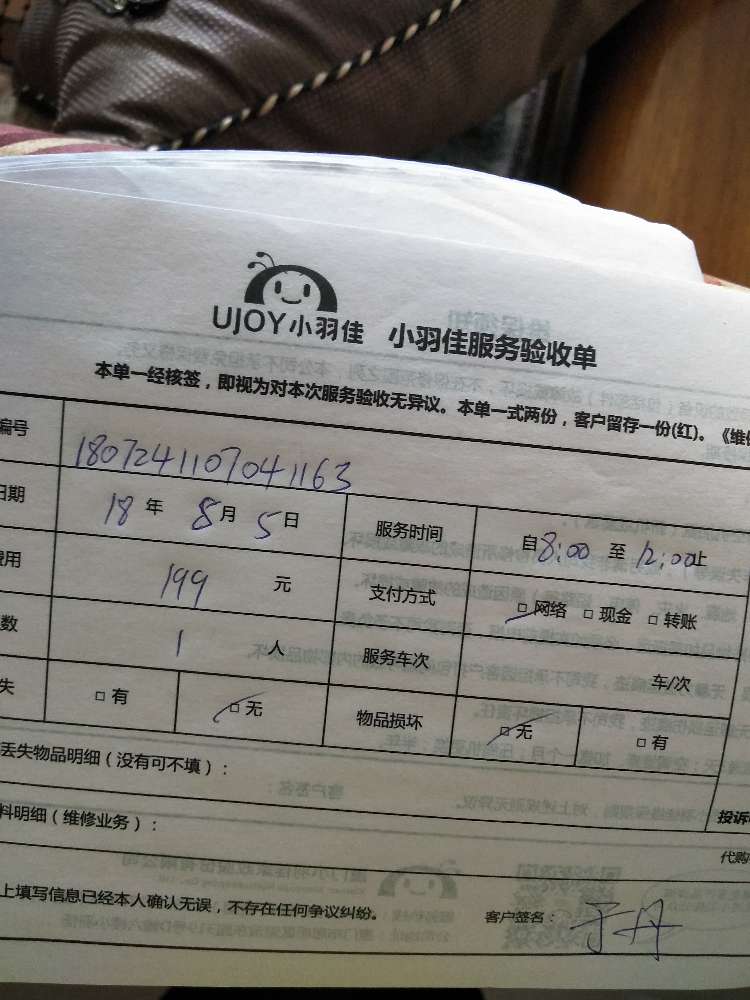 UJOY小羽佳 小羽佳服务验收单
本单一经核签，即视为对本次服务验收无异议。本单一式两份，客户留存一份(红)。《维
编号 1807241107041163
日期 18年 8月 5日 服务时间 自8:00 至 12:00止
费用 199 元 支付方式 □网络 □现金 □转账
数 1 人 服务车次 车/次
失 □有 □无 物品损坏 □无 □有
丢失物品明细（没有可不填）： 投诉
料明细（维修业务）： 代购
上填写信息已经本人确认无误，不存在任何争议纠纷。 客户签名：于丹